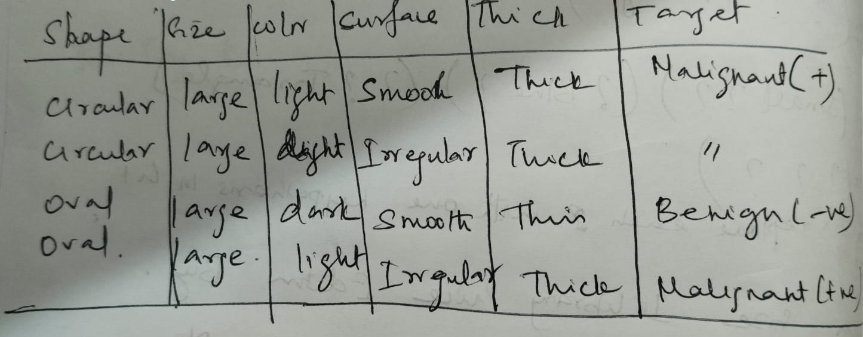 Shape Size color Surface Thick Target
Circular large light Smooth Thick Malignant (+)
Circular large light Irregular Thick "
Oval large dark Smooth Thin Benign (-ve)
Oval. large. light Irregular Thick Malignant (+ve)